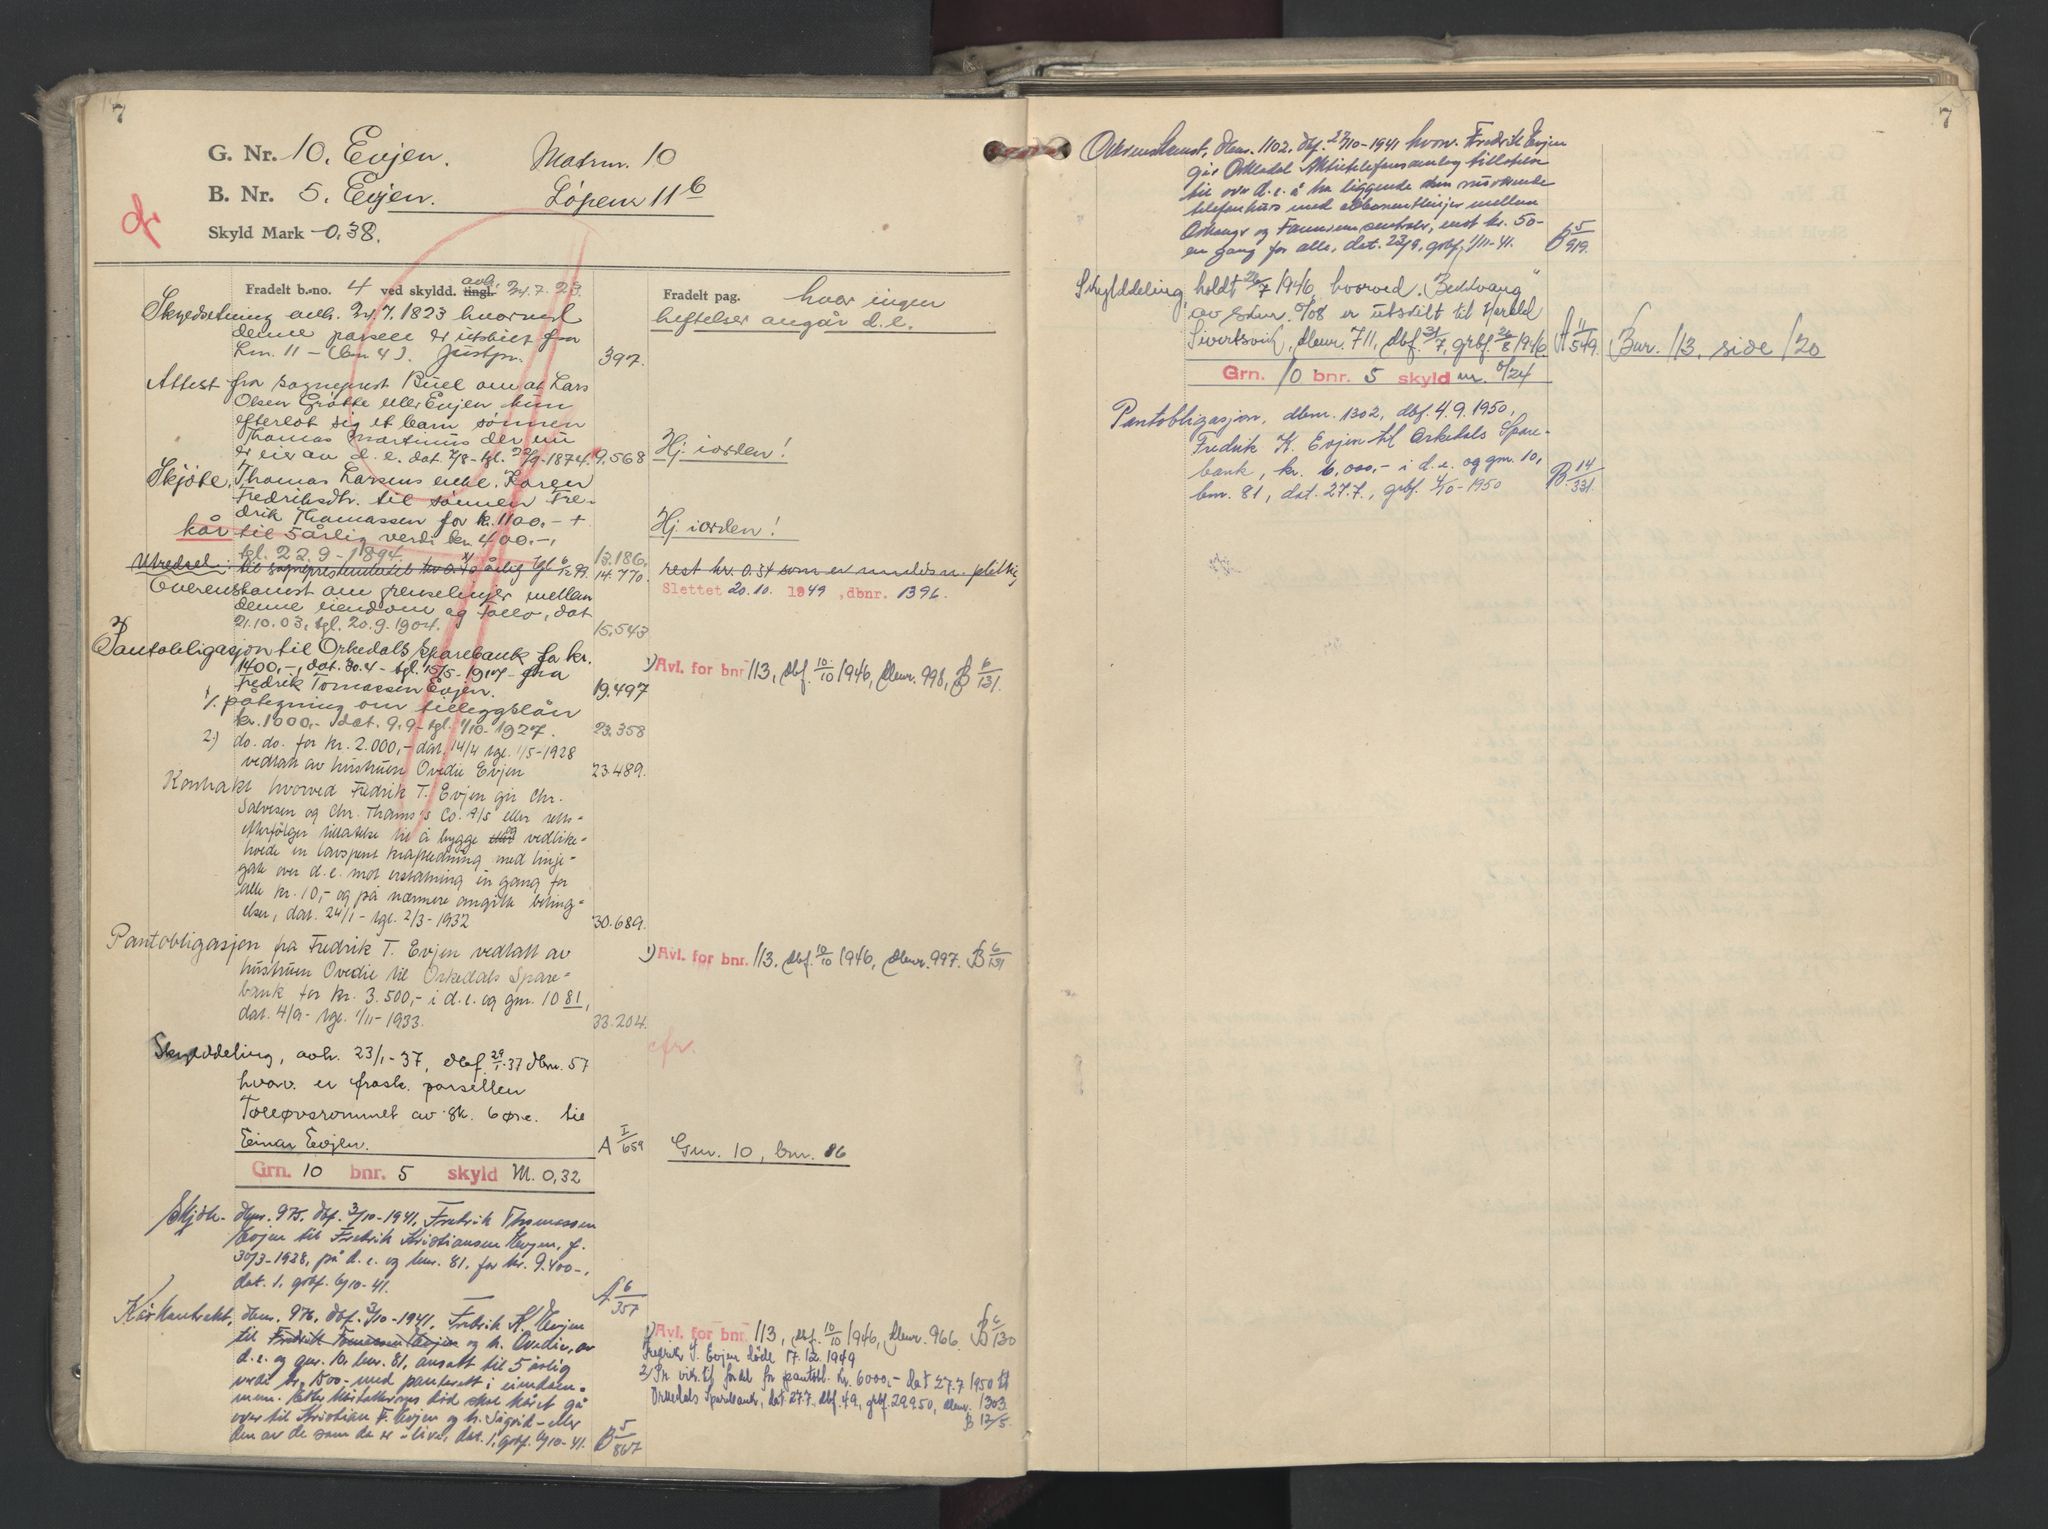 7
G. Nr. 10. Evjen. Matrnr. 10
B. Nr. 5. Evjen. Løpenr 11b
Skyld Mark 0.38.
Fradelt b.-no. 4 ved skyldd. tingl. avh. 24.7.23.
Fradelt pag. hvor ingen
heftelser angår d.e.
Skyldsetning avh. 24.7.1823 hvorved
denne parsel er utskilt fra
Lnr. 11 - (bnr 4).
397.
Attest fra sogneprest Buel om at Lars
Olsen Grötte eller Evjen kun
efterlot sig et barn sønnen
Thomas Martinus der nu
er eier av d.e. dat. 7/8 - tgl. 22/9-1874. 9.568
Hj. i orden!
Skjöte, Thomas Larsens enke, Karen
Fredriksdtr. til sønnen Fre-
drik Thomassen for kr. 1100.- +
kår til 5årlig verdi kr. 400.-,
tgl. 22.9-1894. 13.186.
Hj. i orden!
Utredsel til 14.770.
rest kr. 0.34 som er uinnløsn. pliktig
Slettet 20.10.1949, dbnr. 1396.
Overenskomst om grenselinjer mellem
denne eiendom og Follo, dat
21.10.03, tgl. 20.9.1904. 15.543
Pantobligasjon til Orkedals Sparebank for kr.
1400.-, dat. 30.4 - tgl. 15/5-1917 fra
Fredrik Tomassen Evjen. 19.497
1) Avl. for bnr 113, dbf. 10/10 1946, dbnr. 998, B 6/131.
1/. påtegning om tilleggslån
kr. 1000,- dat. 9.9 - tgl. 1/10-1927. 23.358
2.) do. do. for kr. 2.000,- dat. 14/4 tgl. 1/5-1928
vedtatt av hustruen Ovedie Evjen 23.489.
Kontrakt hvorved Fredrik T. Evjen gir Chr.
Salvesen og Chr. Thams's Co. A/S eller retts-
etterfølger tillatelse til å bygge og vedlike-
holde en lavspent kraftledning med linje-
gate over d.e. mot erstatning en gang for
alle kr. 10,- og på nærmere angitte beting-
elser, dat. 24/1 - tgl. 2/3-1932 30.689.
Pantobligasjon fra Fredrik T. Evjen vedtatt av
hustruen Ovedie til Orkedals Spare-
bank for kr. 3.500,- i d.e. og gnr. 10 81,
dat. 4/9 - tgl. 1/11-1933. 33.204.
1) Avl. for bnr. 113. dbf. 10/10 1946, dbnr. 997. B 6/131
cfr.
Skylddeling, avh. 23/1-37, dbf. 29/1-37 dbnr. 57
hvorv. er frask. parsellen
av sk. 6 øre. til
Einar Evjen. A I/659
Gnr. 10, bnr. 86
Grn. 10 bnr. 5 skyld M. 0,32
Skjöte- dbnr. 975, dbf. 3/10-1941, Fredrik Thomassen
Evjen til Fredrik Kristiansen Evjen, f.
30/3-1928, på d.e. og bnr. 81, for kr. 9.400-,
dat. 1, grbf. 6/10-41. A 6/357
Kårkontrakt, dbnr. 976, dbf. 3/10-1941, Fredrik K. Evjen
til Fredrik Tomassen Evjen og h. Ovedie, av
d.e. og gnr. 10, bnr. 81, ansatt til 5 årlig
verdi kr. 1500- med panterett i eiendom-
men. Etter kårtakernes död skal kåret gå
over til Kristian F. Evjen og h. Sigrid - eller
den av de som da er i live, dat. 1, grbf. 6/10-41. B 5/867
1) Avl. for bnr 113, dbf. 10/10 1946, dbnr. 966. B 6/130
Fredrik T. Evjen døde 17.12.1949
2) Pr. vik. til fordel for pantobl. kr. 6000,- dat 27.7 1950 til
Orkedals Sparebank, dat 27.7, dbf. 4.9, grbf. 29.9.50, dbnr. 1303.
B 12/5.
7
Overenskomst, dbnr. 1102, dbf. 27/10-1941 hvorv. Fredrik Evjen
gir Orkedal Aktietelefonsamlag tillatelse
til over d.e. å ha liggende den nuværende
telefonkurs med abonnentlinjer mellem
Orkanger og Fannrem sentraler, mot kr. 50-
en gang for alle, dat. 23/9, grbf. 1/11-41. B 5/919.
Skylddeling, holdt 26/7 1946, hvorved „Bedtvang"
av skyld 0/08 er utskilt til Harald
Sivertsvik, dbnr. 711, dbf. 31/7, grbf. 26/8 1946 A 11/549.
Bnr. 113, side 120
Grn. 10 bnr. 5 skyld m. 0/24
Pantobligasjon, dbnr. 1302, dbf. 4.9.1950,
Fredrik K. Evjen til Orkedals Spare-
bank, kr. 6.000,- i d.e. og gnr. 10,
bnr. 81, dat. 27.7., grbf. 4/10-1950 B 14/331.